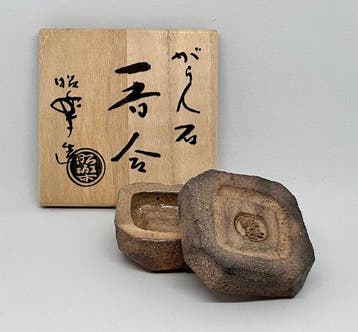 がらん石
香合
昭楽造
昭楽